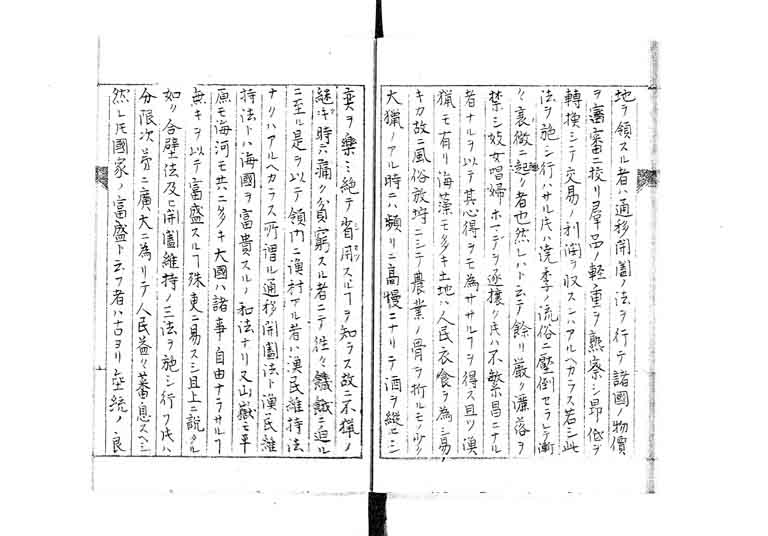 地ヲ領スル者ハ通移開闔ノ法ヲ行テ諸國ノ物價
ヲ審審ニ挍リ羣品ノ輕重ヲ熟察シ昂低ヲ
轉換シテ交易ノ利潤ヲ収スンハアルヘカラス若シ此
法ヲ施シ行ハサル片ハ澆季ノ流俗ニ壓倒セラレテ漸
〻衰微ニ起ク者也然レハト云テ餘リ嚴ク灑落ヲ
禁シ妓女唱婦ホマテヲ逐攘ク片ハ不繁昌ニナル
者ナルヲ以テ其心得ヲモ為サヽルヿヲ得ス且ツ漁
猟モ有リ海藻モ多キ土地ハ人民衣食ヲ為シ易
キカ故ニ風俗放埒ニシテ農業ノ骨ヲ折ルモノ少ク
大猟ノアル時ニハ頻リニ高慢ニナリテ酒ヲ縦ニシ
奕ヲ樂ミ絶テ省用スルヿヲ知ラス故ニ不猟ノ
継キ時ハ痛ク貧窮スル者ニテ往々饑餓ニ迫ル
ニ至ル是ヲ以テ領内ニ漁村アル者ハ漁民維持法
ナクハアルヘカラス所謂ル通移開闔法ト漁民維
持法トハ海國ヲ富貴スルノ和法ナリ又山嶽モ平
原モ海河モ共ニ多キ大國ハ諸事自由ナラサルヿ
無キヲ以テ富盛スルヿ殊更ニ易スシ且上ニ説タル
如ク合壁法及ヒ開闔維持ノ三法ヲ施シ行フ片ハ
分限次第ニ廣大ニ為リテ人民益々蕃息スヘシ
然レ片國家ノ富盛ト云フ者ハ古ヨリ垂統ノ良